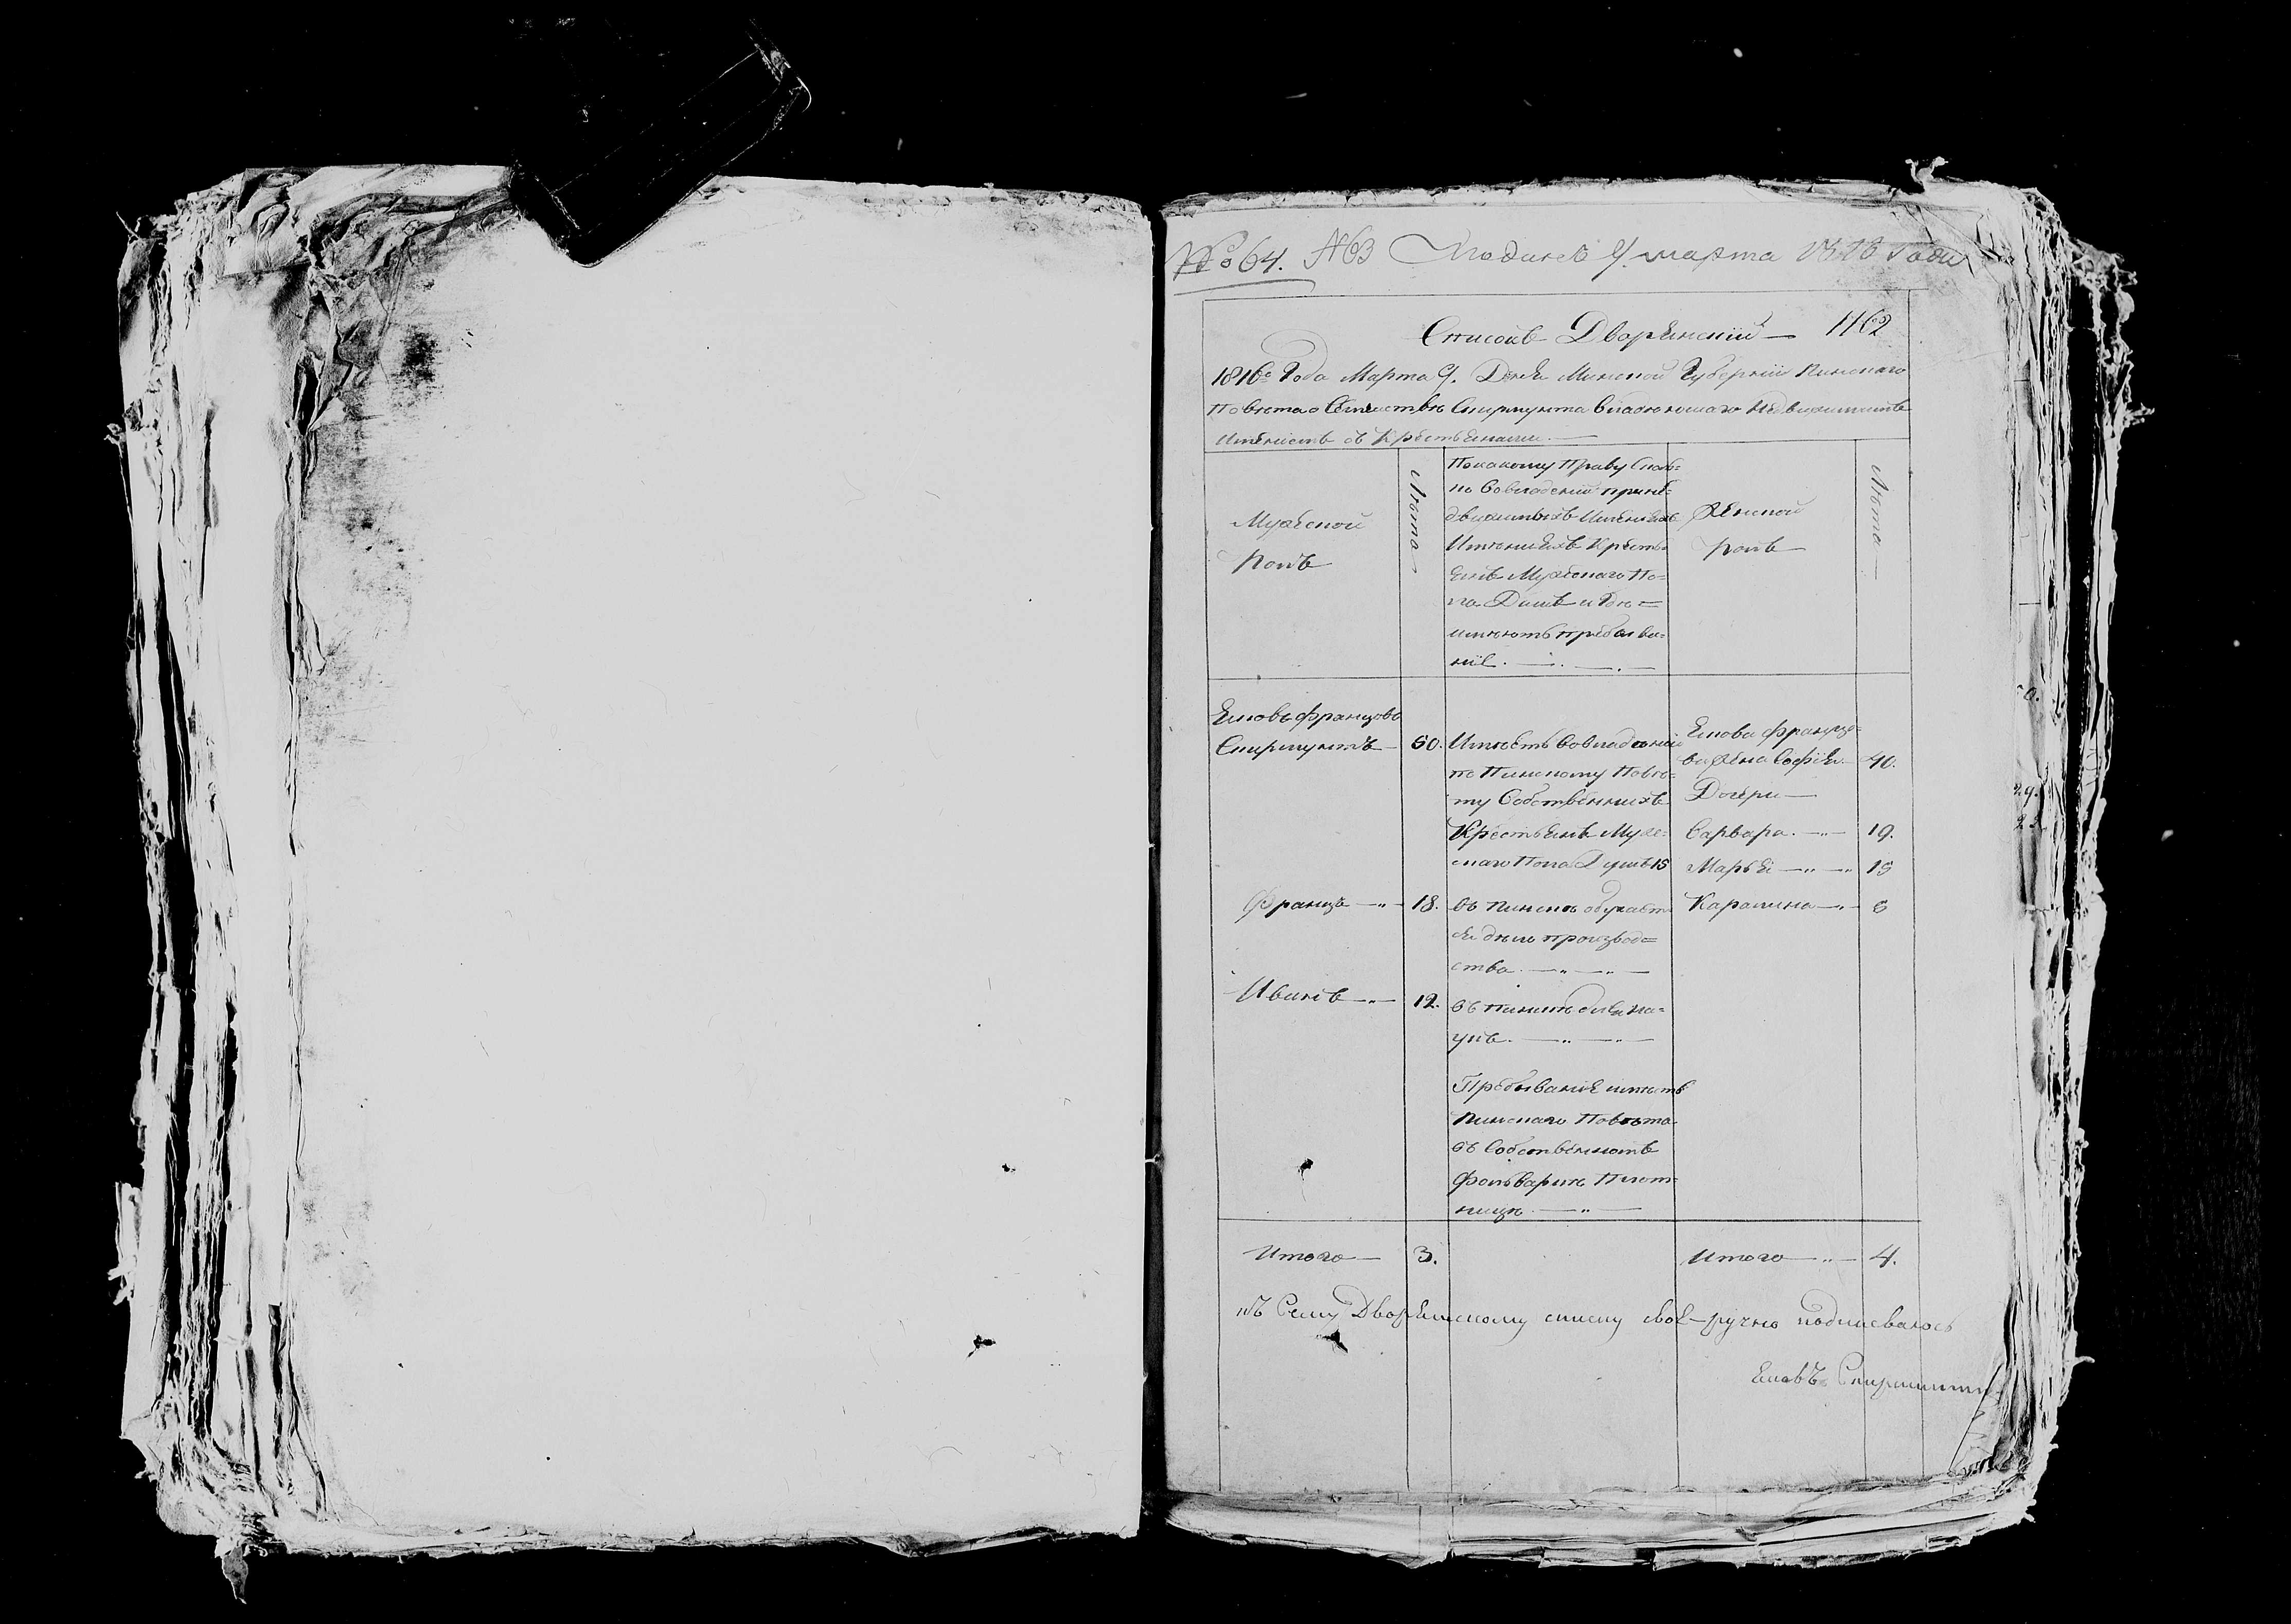 № 64. №63 Поданъ 9. марта 1816 Года
Списокъ Дворянскій — 1162
1816го Года Марта 9. Дня Минской Губерніи Пинскаго
Повѣта о Семействѣ Скирмунта владеющаго Недвижимымъ
Имѣніемъ съ Крестьянами. —
Мужеской
Полъ
Лѣта
По какому Праву
во Владеніи
Имѣніяхъ
Крестья-
янъ Мужескаго По-
ла Душъ и Где
имѣютъ пребыва-
ніе. —
Женской
полъ
Лѣта —
Яковъ Францовъ
Скирмунтъ — 60.
Имѣетъ во владеніи
по Пинскому Повѣ-
ту Собственныхъ
Крестьянъ Муже-
скаго Пола Душъ 15
Якова Францо-
ва Жена Софія — 40.
Дочери —
Варвара. — 19.
Марья — 15
Каралина — 6
Францъ — 18.
въ Пинскѣ обучает-
ся дѣло производ-
ства. —
Иванъ — 12.
въ Пинскѣ для на-
укъ. —
Пребываніе имѣетъ
Пинскаго Повѣта
въ Собственномъ
Фольваркѣ Плот-
ницѣ. —
Итого — 3.
Итого — 4.
къ Сему Дворянскому списку своеручно подписываюсь
Яковъ Скирмунтъ